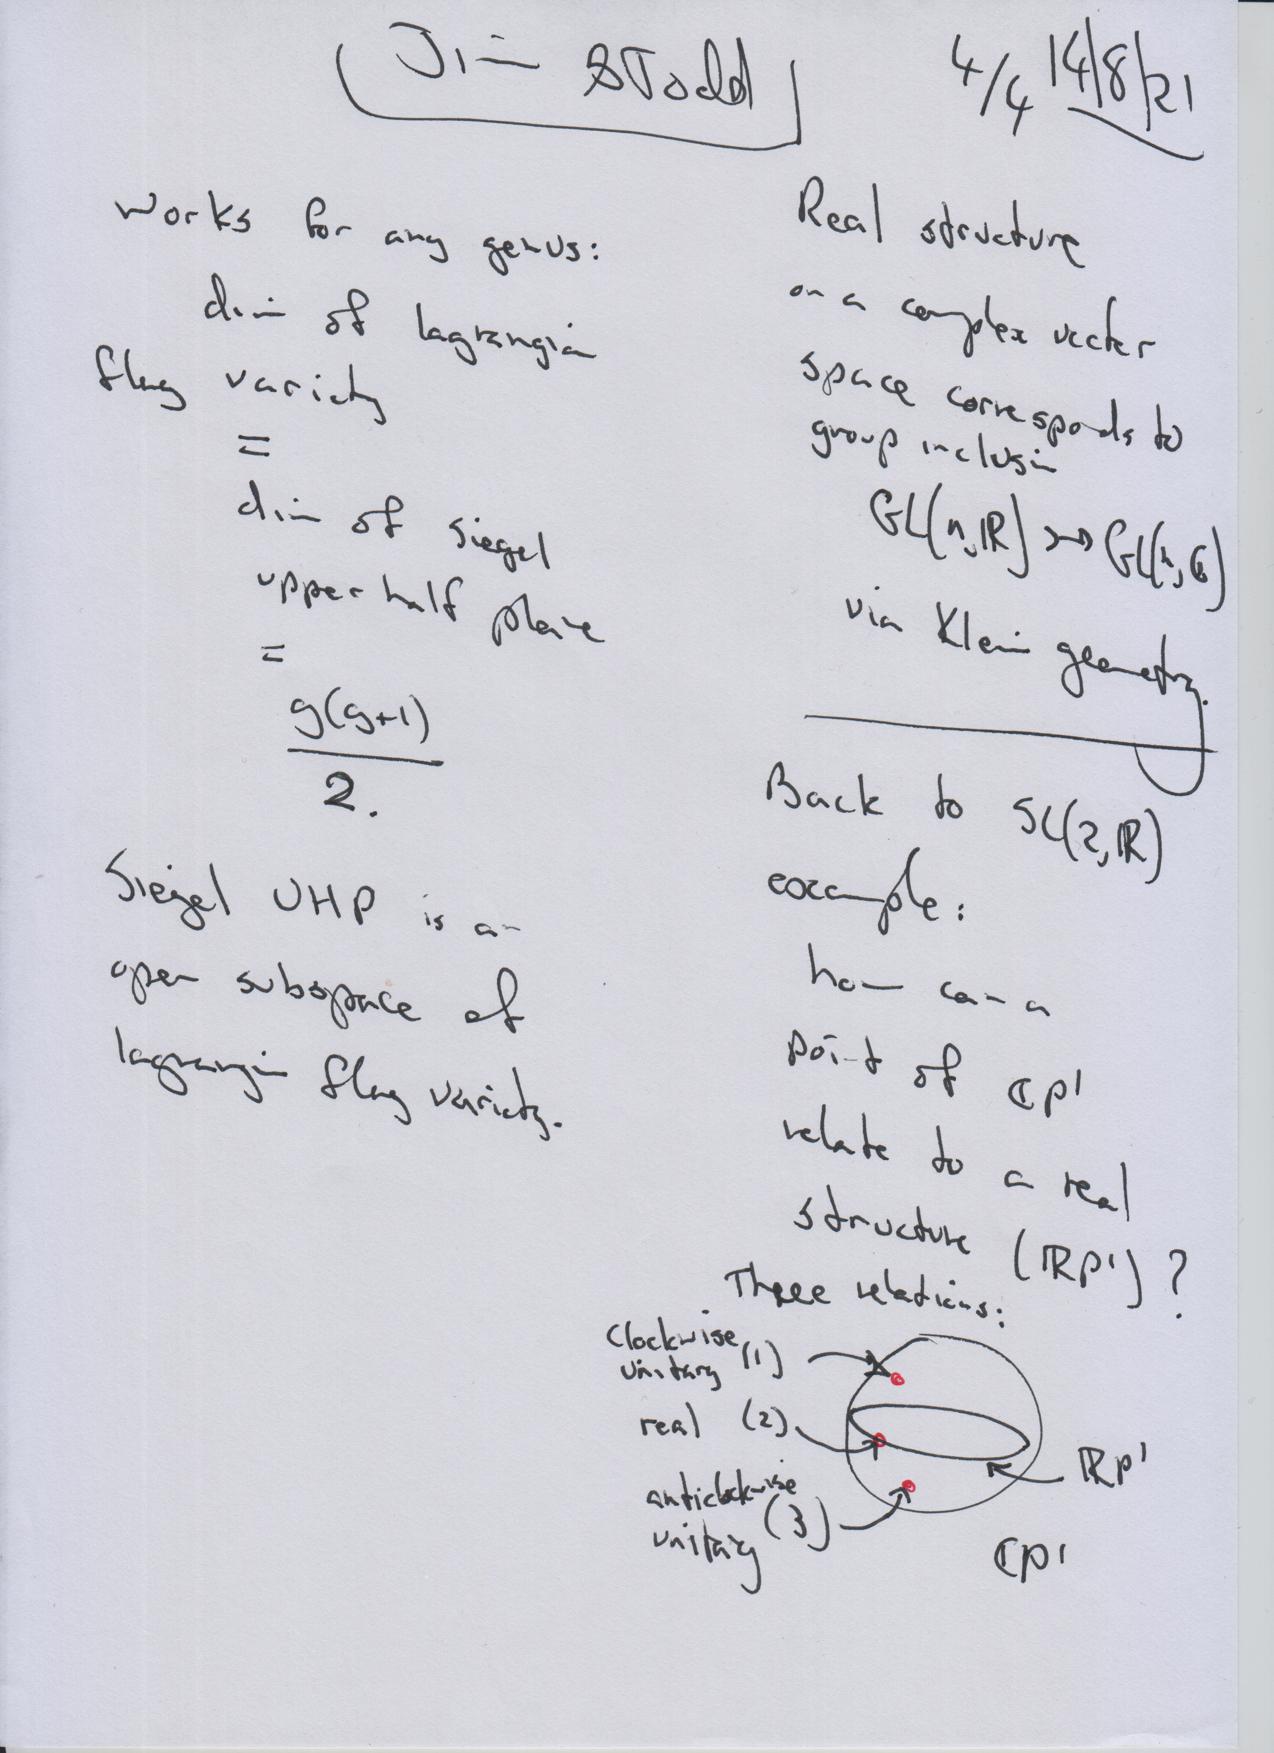 Jim & Todd
4/4 14/8/21
works for any genus:
dim of lagrangian
flag variety
=
dim of Siegel
upper half plane
=
g(g+1)
2.
Siegel UHP is an
open subspace of
lagrangian flag variety.
Real structure
on a complex vector
space corresponds to
group inclusion
GL(n,ℝ) ↣ GL(n,ℂ)
via Klein geometry.
Back to SL(2,ℝ)
example:
how can a
point of ℂP¹
relate to a real
structure (ℝP¹)?
Three relations:
clockwise
unitary (1)
real (2)
anticlockwise
unitary (3)
ℝP¹
ℂP¹